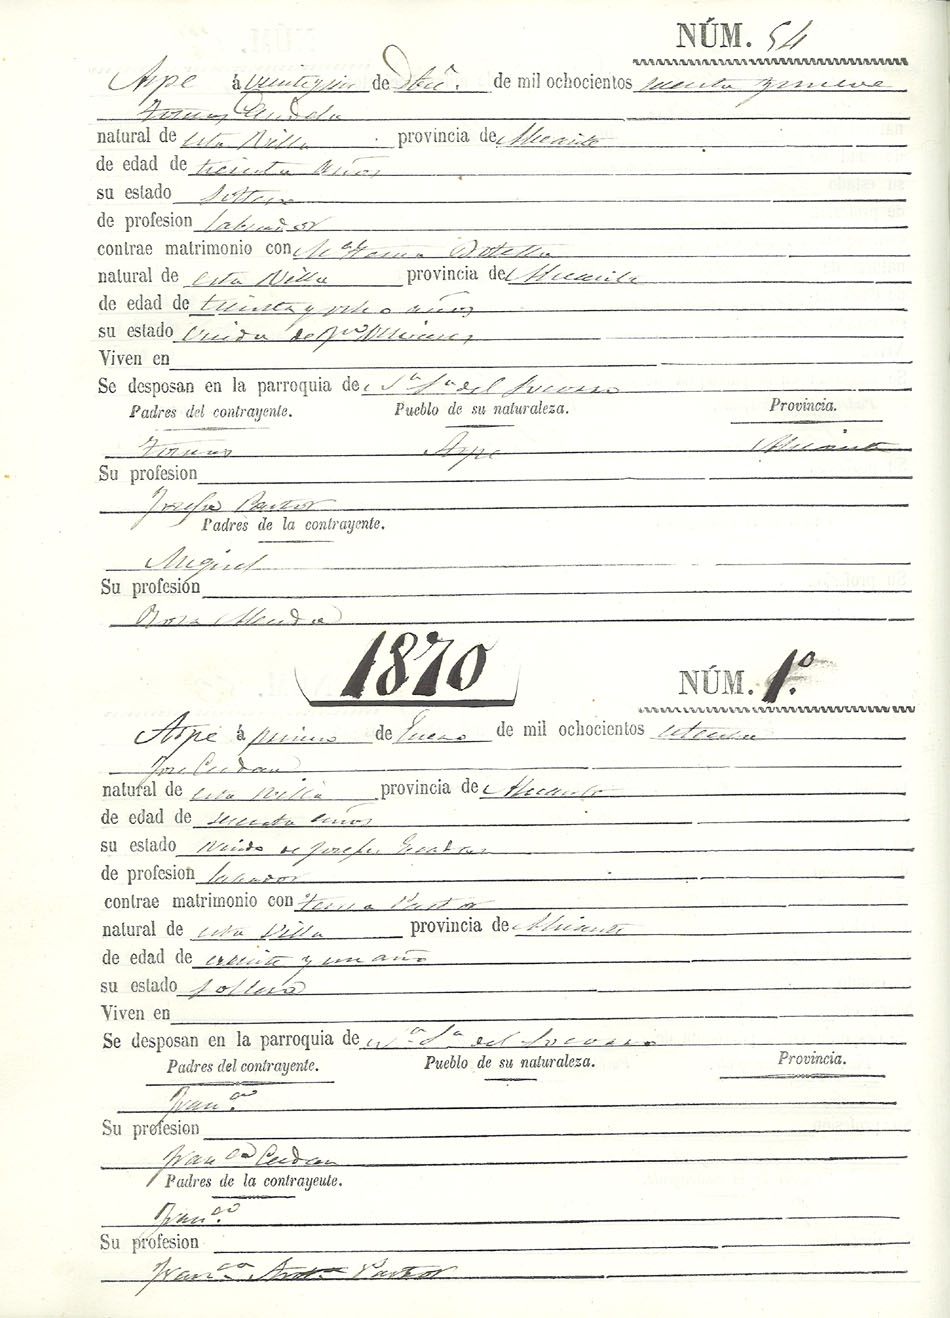 NÚM. 54
Aspe á de Dbre. de mil ochocientos sesenta y nueve
Tomas Candela
natural de esta Villa provincia de Alicante
de edad de treinta años
su estado Soltero
de profesion labrador
contrae matrimonio con Mª Teresa Botella
natural de esta Villa provincia de Alicante
de edad de treinta y ocho años
su estado Viuda de
Viven en
Se desposan en la parroquia de Nª Sª del Socorro
Padres del contrayente. Pueblo de su naturaleza. Provincia.
Tomas Aspe Alicante
Su profesion
Josefa Pastor
Padres de la contrayente.
Miguel
Su profesion
Rosa
1870 NÚM. 1º.
Aspe á primero de Enero de mil ochocientos setenta
Jose Cerdan
natural de esta Villa provincia de Alicante
de edad de años
su estado Viudo de Josefa
de profesion labrador
contrae matrimonio con Teresa Pastor
natural de esta Villa provincia de Alicante
de edad de y un año
su estado Soltera
Viven en
Se desposan en la parroquia de Nª Sª del Socorro
Padres del contrayente. Pueblo de su naturaleza. Provincia.
Franco.
Su profesion
Franca Cerdan
Padres de la contrayente.
Franco.
Su profesion
Franca Pastor